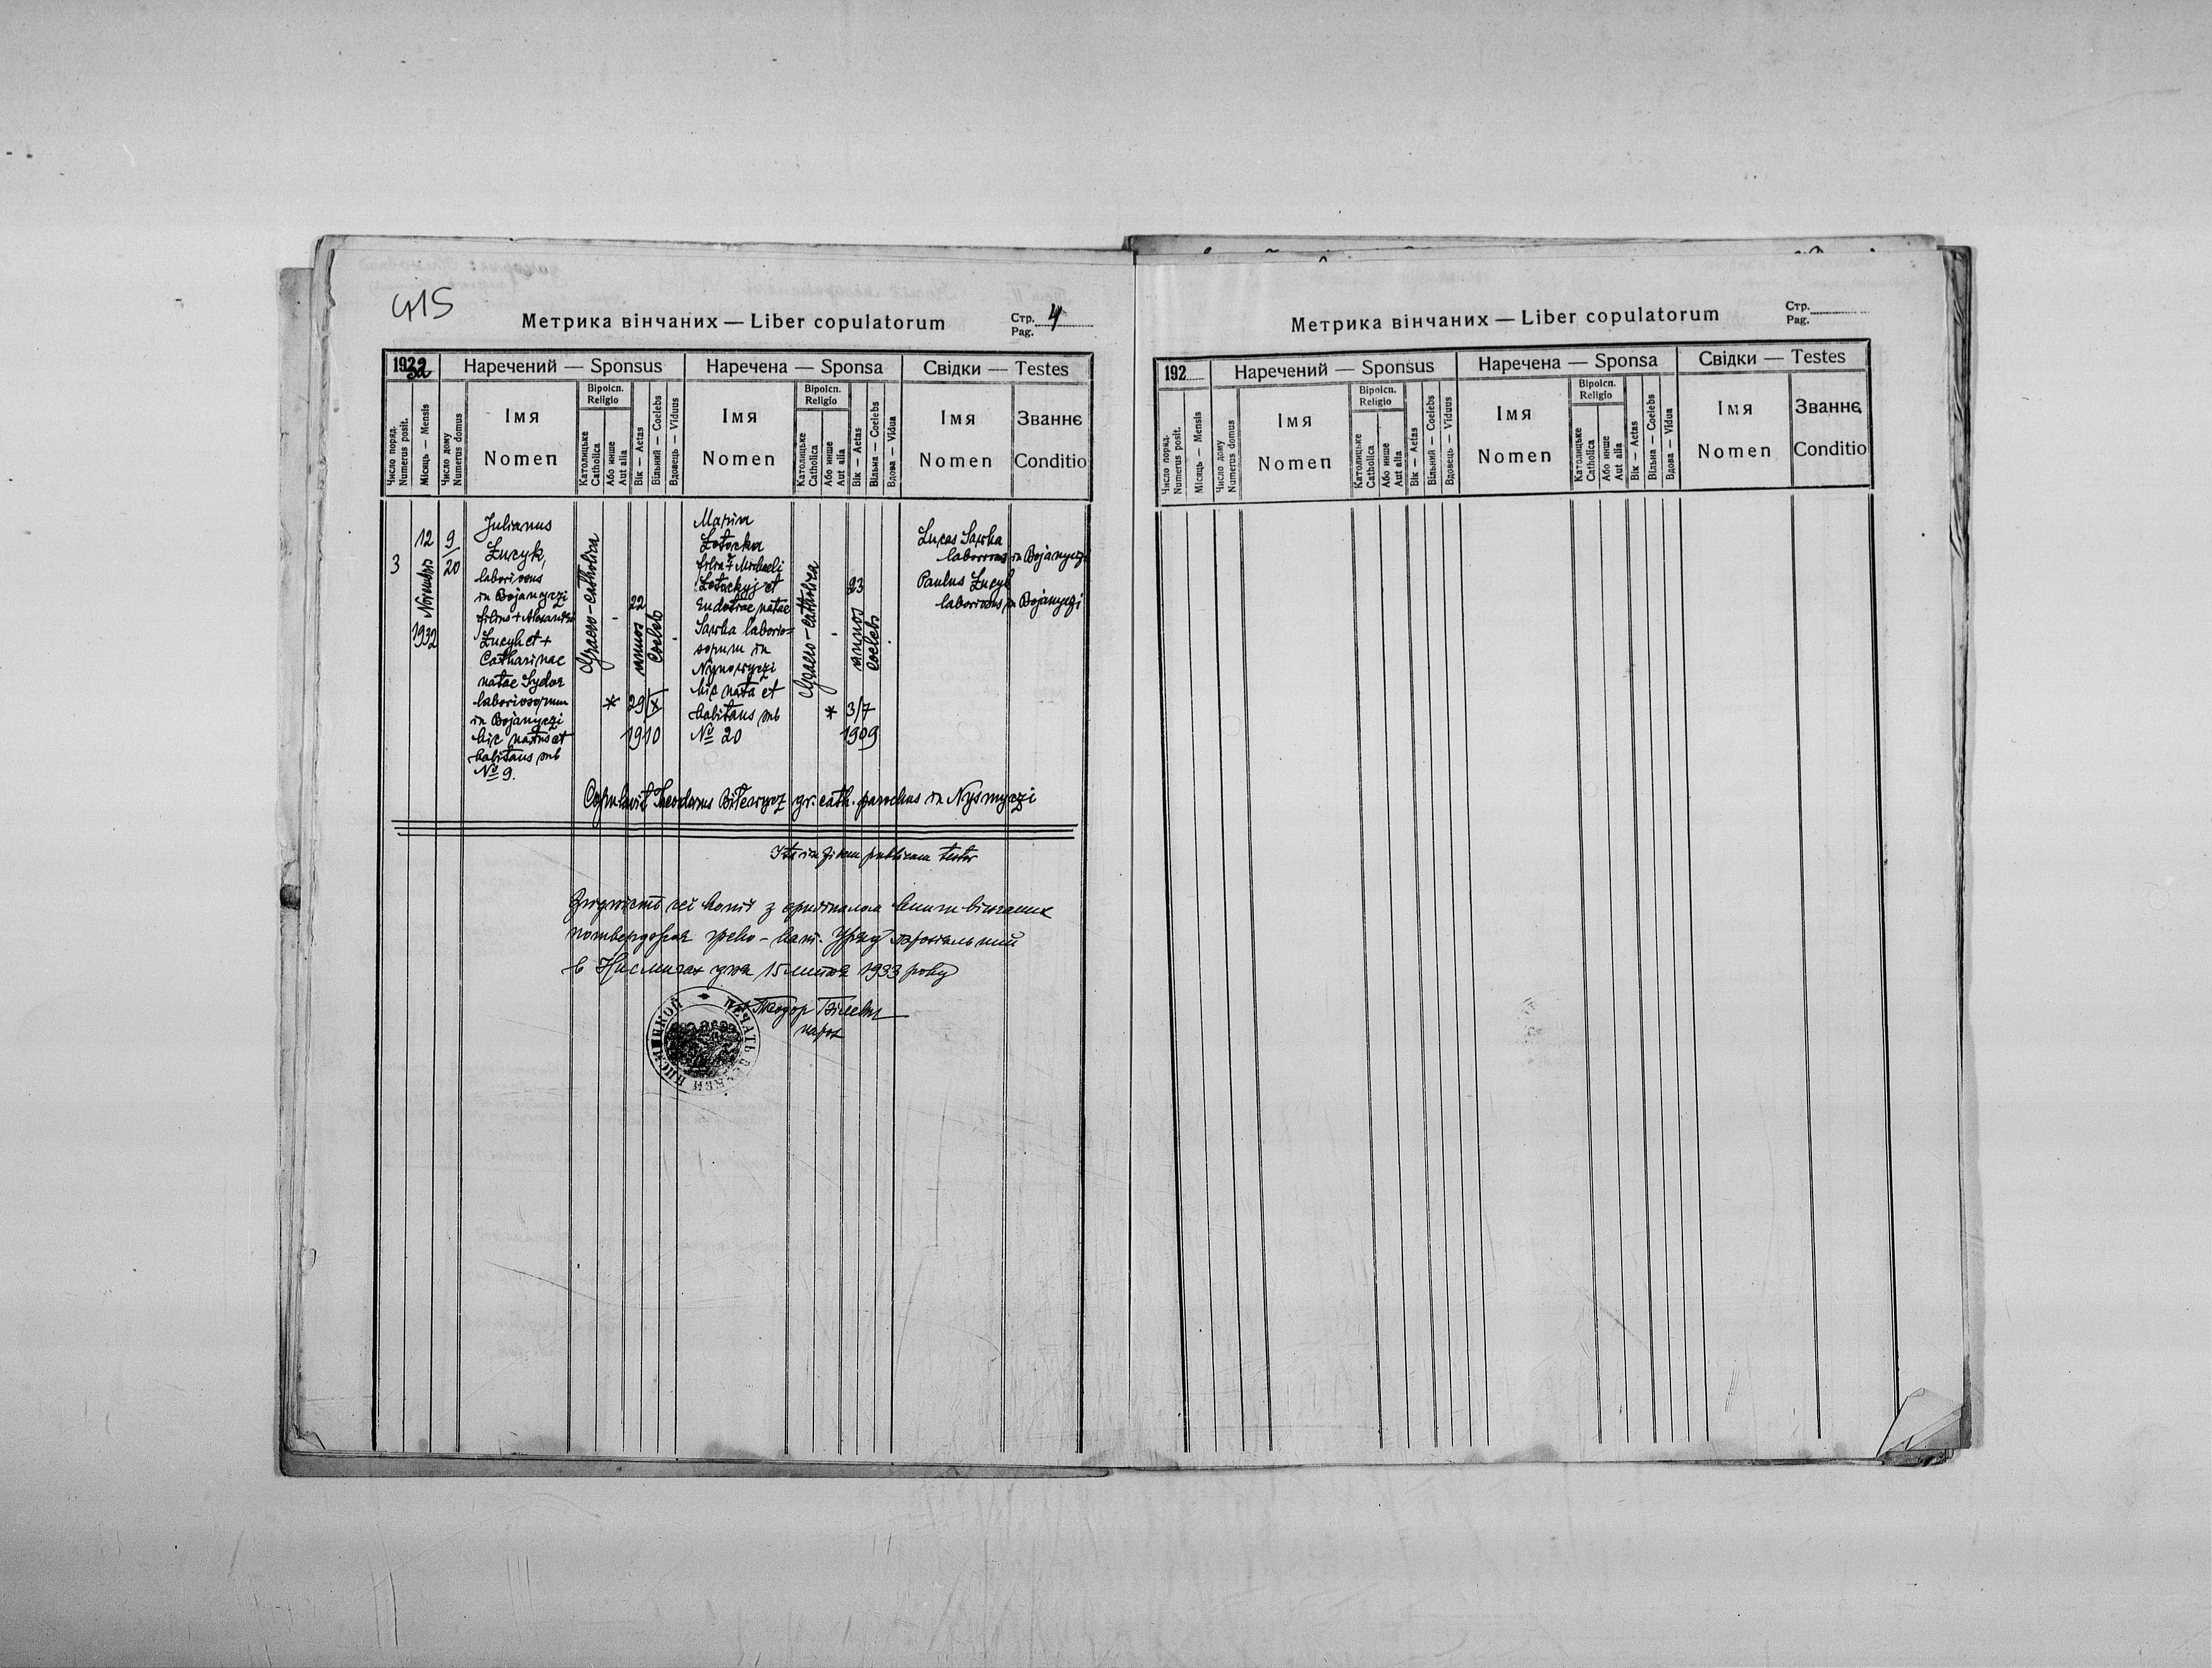 415
Метрика вінчаних — Liber copulatorum
Стр. Pag. 4
1932
Наречений — Sponsus
Наречена — Sponsa
Свідки — Testes
Число поряд. Numerus posit.
Місяць — Mensis
Число дому Numerus domus
Імя
Nomen
Віроісп. Religio
Католицьке Catholica
Або инше Aut alia
Вік — Aetas
Вільний — Coelebs
Вдовець — Viduus
Імя
Nomen
Віроісп. Religio
Католицьке Catholica
Або инше Aut alia
Вік — Aetas
Вільна — Coelebs
Вдова — Vidua
Імя
Nomen
Званнє
Conditio
3
12
Novembris
1932
9/20
Julianus
Łucyk,
laboriosus
in Bojanyczi
filius + Alexandri
Łucyk et +
Catharinae
natae Sydor
laboriosorum
in Bojanyczi
hic natus et
habitans sub
№ 9.
Graeco-catholica
-
22
annos
* 29/X
1910
coelebs
Maria
Łotocka
filia + Michaeli
Łotockyj et
Eudoxiae natae
Sawka laborio=
sorum in
hic nata et
habitans sub
№ 20
Graeco-catholica
-
23
annos
* 3/7
1909
coelebs
Lucas Sawka
laboriosus in Bojanyczi
Paulus Łucyk
laboriosus in Bojanyczi
Copulavit Theodorus Bilewycz gr. cath. parochus in Nysmyczi
Ita in fidem publicam testor
Згідність сеї копії з оригіналом книги вінчаних
потверджає греко-кат. Уряд парохіяльний
в Нисмичах дня 15 лютня 1933 року
Теодор Білевич
парох
ПЕЧАТЬ ЦЕРКВИ
Метрика вінчаних — Liber copulatorum
Стр. Pag.
192
Наречений — Sponsus
Наречена — Sponsa
Свідки — Testes
Число поряд. Numerus posit.
Місяць — Mensis
Число дому Numerus domus
Імя
Nomen
Віроісп. Religio
Католицьке Catholica
Або инше Aut alia
Вік — Aetas
Вільний — Coelebs
Вдовець — Viduus
Імя
Nomen
Віроісп. Religio
Католицьке Catholica
Або инше Aut alia
Вік — Aetas
Вільна — Coelebs
Вдова — Vidua
Імя
Nomen
Званнє
Conditio